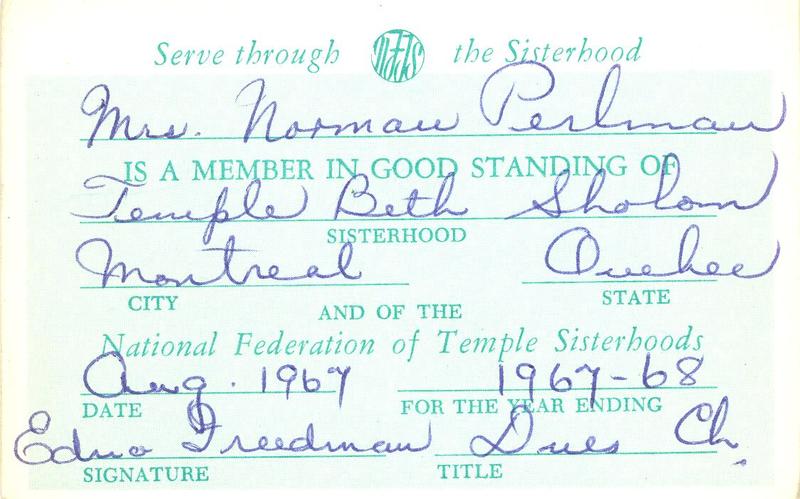 Serve through NFTS the Sisterhood
Mrs. Norman Perlman
IS A MEMBER IN GOOD STANDING OF
Temple Beth Sholom
SISTERHOOD
Montreal Quebec
CITY STATE
AND OF THE
National Federation of Temple Sisterhoods
Aug. 1967 1967-68
DATE FOR THE YEAR ENDING
Edna Freedman Dues Ch.
SIGNATURE TITLE